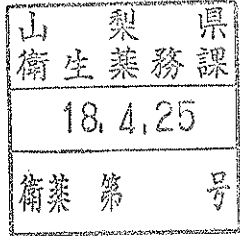 山梨県
衛生薬務課
18.4.25
衛薬第 号